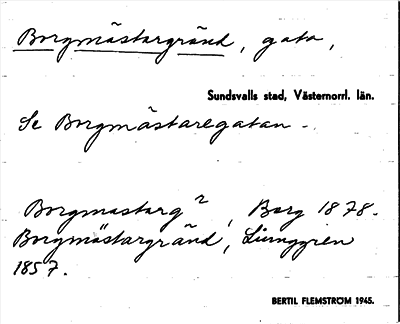 Borgmästargränd, gata,
Sundsvalls stad, Västernorrl. län.
Se Borgmästaregatan.
Borgmastarg², Berg 1878.
Borgmästargränd, Ljunggren
1857.
BERTIL FLEMSTRÖM 1945.